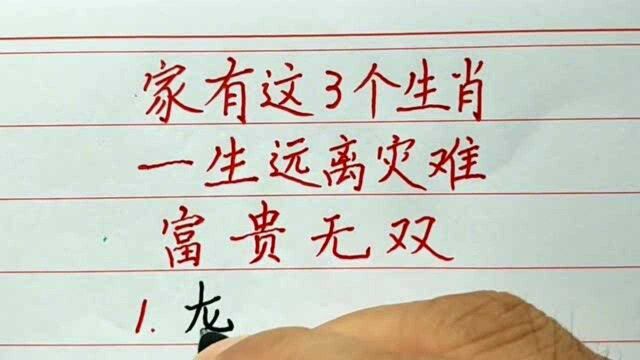 家有这3个生肖
一生远离灾难
富贵无双
1. 龙